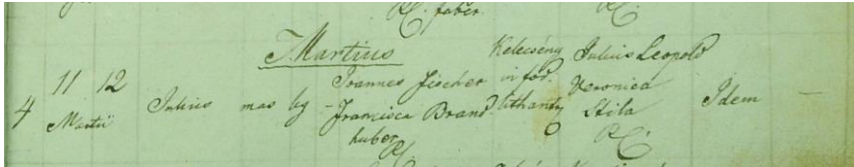 R.C. faber. R.C.
Martius
4 11 12 Martii Julius mas leg Joannes Fischer Francisca Brandhuber R.C. Kelecsény in fod. Julius Leopold Veronica Stila R.C. Idem —